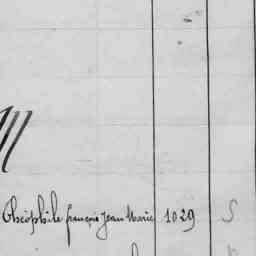 Théophile françois Jean Marie 1029 S